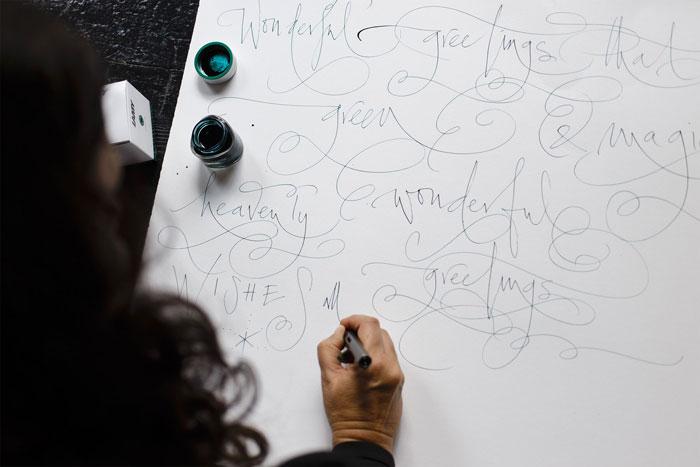 Wonderful greetings that
green & magi
heavenly & wonderful
WISHES all greetings
LAMY